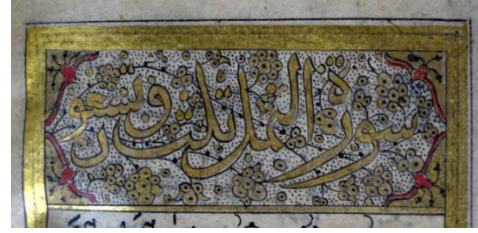 سورة النمل ثلث وتسعون